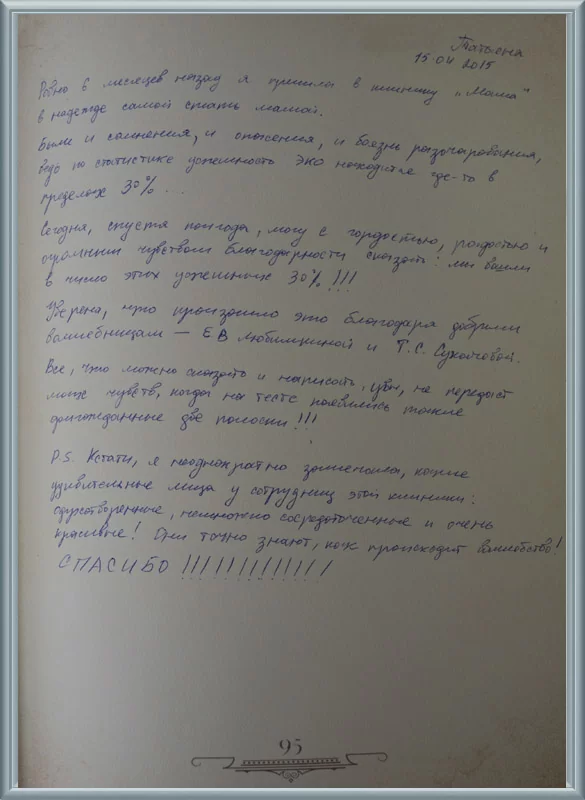 Татьяна
15.04.2015
Ровно 6 месяцев назад я пришла в клинику "Мама"
в надежде самой стать мамой.
Были и сомнения, и опасения, и боязнь разочарования,
ведь по статистике успешность ЭКО находится где-то в
пределах 30% ...
Сегодня, спустя полгода, могу с гордостью, радостью и
огромным чувством благодарности сказать: мы вошли
в число этих успешных 30% !!!
Уверена, что произошло это благодаря добрым
волшебницам — Е.В. Любимциной и Т.С. Сухочовой.
Все, что можно сказать и написать, увы, не передаст
моих чувств, когда на тесте появились такие
долгожданные две полоски !!!
P.S. Кстати, я неоднократно замечала, какие
удивительные лица у сотрудниц этой клиники:
одухотворенные, немножко сосредоточенные и очень
красивые! Они точно знают, как происходит волшебство!
СПАСИБО !!!!!!!!!!!!!
95